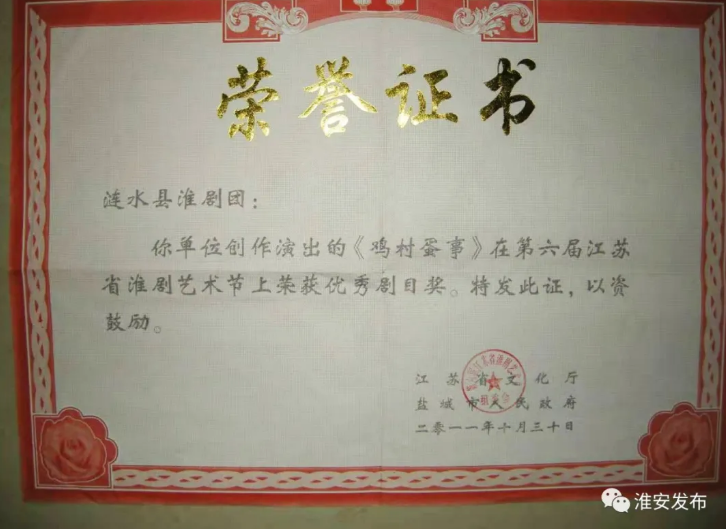 荣誉证书
涟水县淮剧团：
你单位创作演出的《鸡村蛋事》在第六届江苏
省淮剧艺术节上荣获优秀剧目奖。特发此证，以资
鼓励。
江苏省文化厅
盐城市人民政府
二零一一年十月三十日
淮安发布